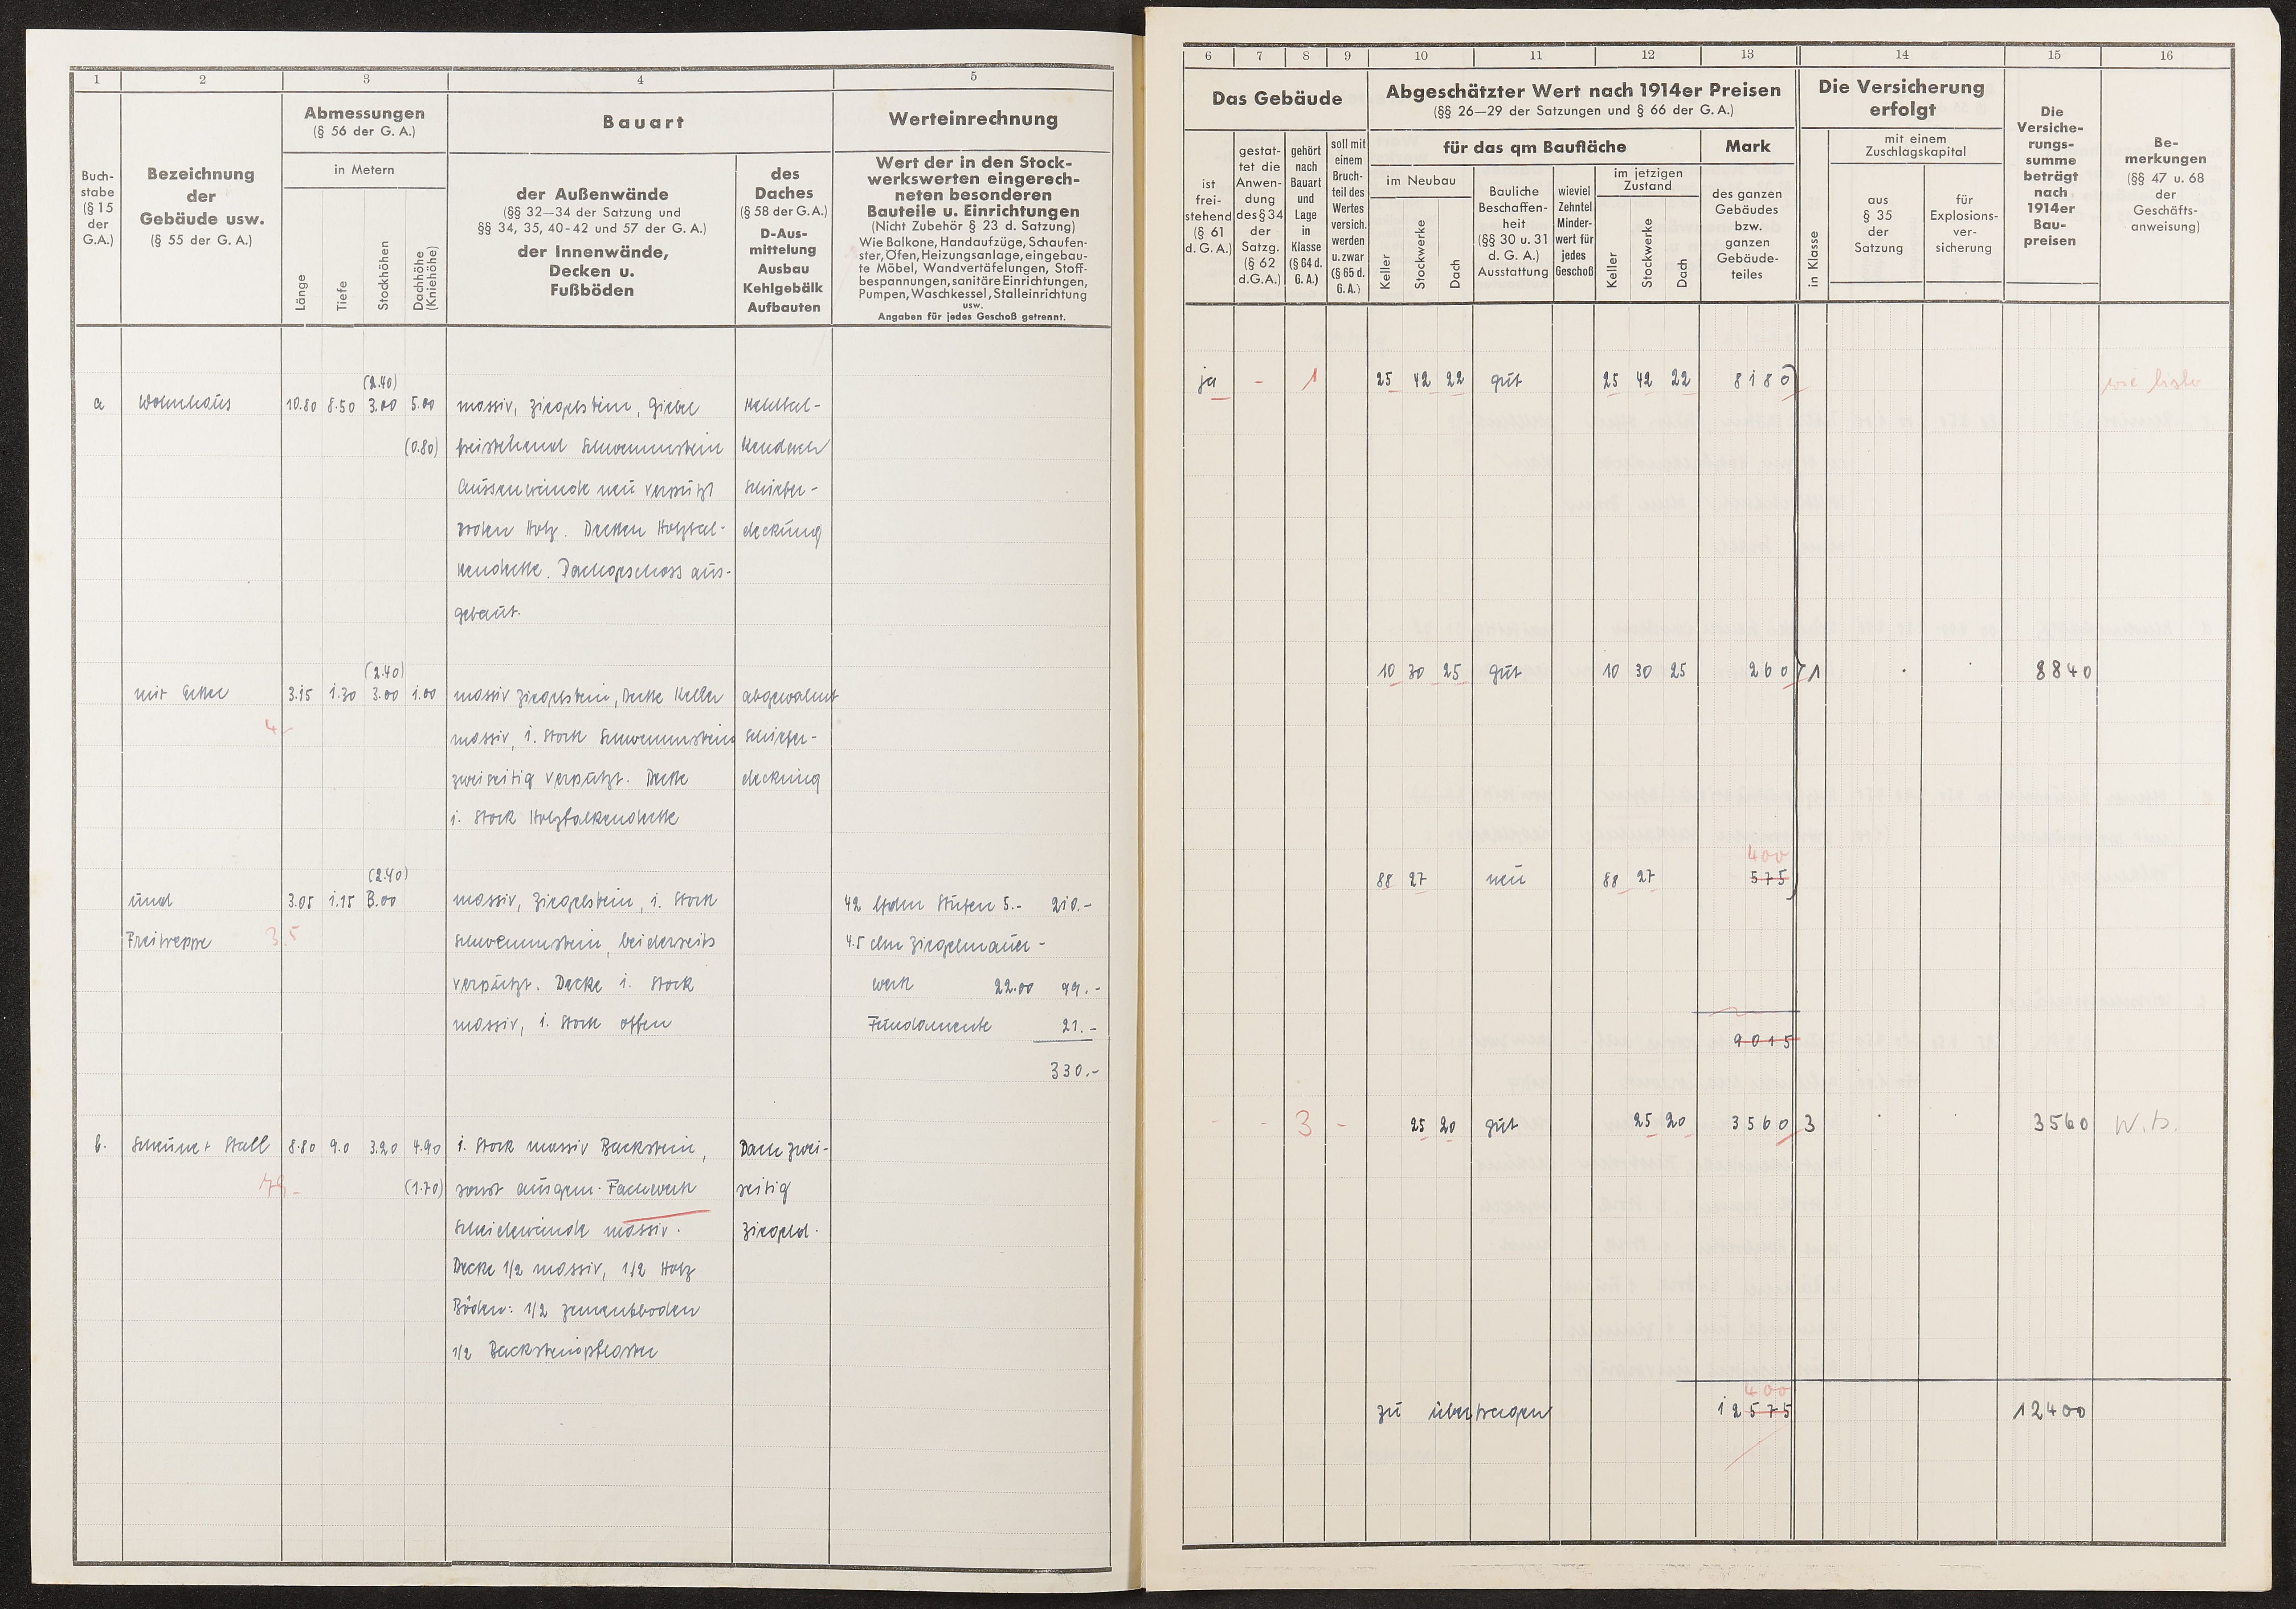 1 2 3 4 5
Buch-
stabe
(§ 15
der
G.A.)
Bezeichnung
der
Gebäude usw.
(§ 55 der G. A.)
Abmessungen
(§ 56 der G. A.)
in Metern
Länge
Tiefe
Stockhöhen
Dachhöhe
(Kniehöhe)
Bauart
der Außenwände
(§§ 32—34 der Satzung und
§§ 34, 35, 40-42 und 57 der G. A.)
der Innenwände,
Decken u.
Fußböden
des
Daches
(§ 58 der G. A.)
D-Aus-
mittelung
Ausbau
Kehlgebälk
Aufbauten
Werteinrechnung
Wert der in den Stock-
werkswerten eingerech-
neten besonderen
Bauteile u. Einrichtungen
(Nicht Zubehör § 23 d. Satzung)
Wie Balkone, Handaufzüge, Schaufen-
ster, Öfen, Heizungsanlage, eingebau-
te Möbel, Wandvertäfelungen, Stoff-
bespannungen, sanitäre Einrichtungen,
Pumpen, Waschkessel, Stalleinrichtung
usw.
Angaben für jedes Geschoß getrennt.
(2.40)
a Wohnhaus 10.80 8.50 3.00 5.00 massiv, Ziegelstein, Giebel Kehlbal-
(0.80) freistehend Schwemmstein Kendach
Aussenwände neu verputzt Schiefer-
Böden Holz. Decken Holzbal- deckung
kendecke. Dachgeschoss aus-
gebaut.
(2.40)
mit Erker 3.15 1.30 3.00 1.00 massiv Ziegelstein, Decke Keller abgewalmt
4.- massiv, 1. Stock Schwemmstein Schiefer-
zweiseitig verputzt. Decke deckung
1. Stock Holzbalkendecke
(2.40)
und 3.05 1.15 3.00 massiv, Ziegelstein, 1. Stock 42 lfdm Stufen 5.- 210.-
Freitreppe 3.5 Schwemmstein, beiderseits 4.5 cbm Ziegelmauer-
verputzt. Decke 1. Stock werk 22.00 99.-
massiv, 1. Stock offen Fundamente 21.-
330.-
b. Scheune + Stall 8.80 9.0 3.20 4.90 1. Stock massiv Backstein, Dach zwei-
79.- (1.70) sonst ausgem. Fachwerk seitig
Scheidewände massiv. Ziegeld.
Decke 1/2 massiv, 1/2 Holz
Böden: 1/2 Zementboden
1/2 Backsteinpflaster
6 7 8 9 10 11 12 13 14 15 16
Das Gebäude
ist
frei-
stehend
(§ 61
d. G. A.)
gestat-
tet die
Anwen-
dung
des § 34
der
Satzg.
(§ 62
d.G.A.)
gehört
nach
Bauart
und
Lage
in
Klasse
(§ 64 d.
G. A.)
soll mit
einem
Bruch-
teil des
Wertes
versich.
werden
u. zwar
(§ 65 d.
G. A.)
Abgeschätzter Wert nach 1914er Preisen
(§§ 26—29 der Satzungen und § 66 der G. A.)
für das qm Baufläche
im Neubau
Keller
Stockwerke
Dach
Bauliche
Beschaffen-
heit
(§§ 30 u. 31
d. G. A.)
Ausstattung
wieviel
Zehntel
Minder-
wert für
jedes
Geschoß
im jetzigen
Zustand
Keller
Stockwerke
Dach
Mark
des ganzen
Gebäudes
bzw.
ganzen
Gebäude-
teiles
Die Versicherung
erfolgt
in Klasse
mit einem
Zuschlagskapital
aus
§ 35
der
Satzung
für
Explosions-
ver-
sicherung
Die
Versiche-
rungs-
summe
beträgt
nach
1914er
Bau-
preisen
Be-
merkungen
(§§ 47 u. 68
der
Geschäfts-
anweisung)
ja - 1 25 42 22 gut 25 42 22 8180 wie bisher
10 30 25 gut 10 30 25 260 1 8840
400
88 27 neu 88 27 575
9015
- - 3 - 25 20 gut 25 20 3560 3 3560 w. b.
400
zu übertragen 12575 12400